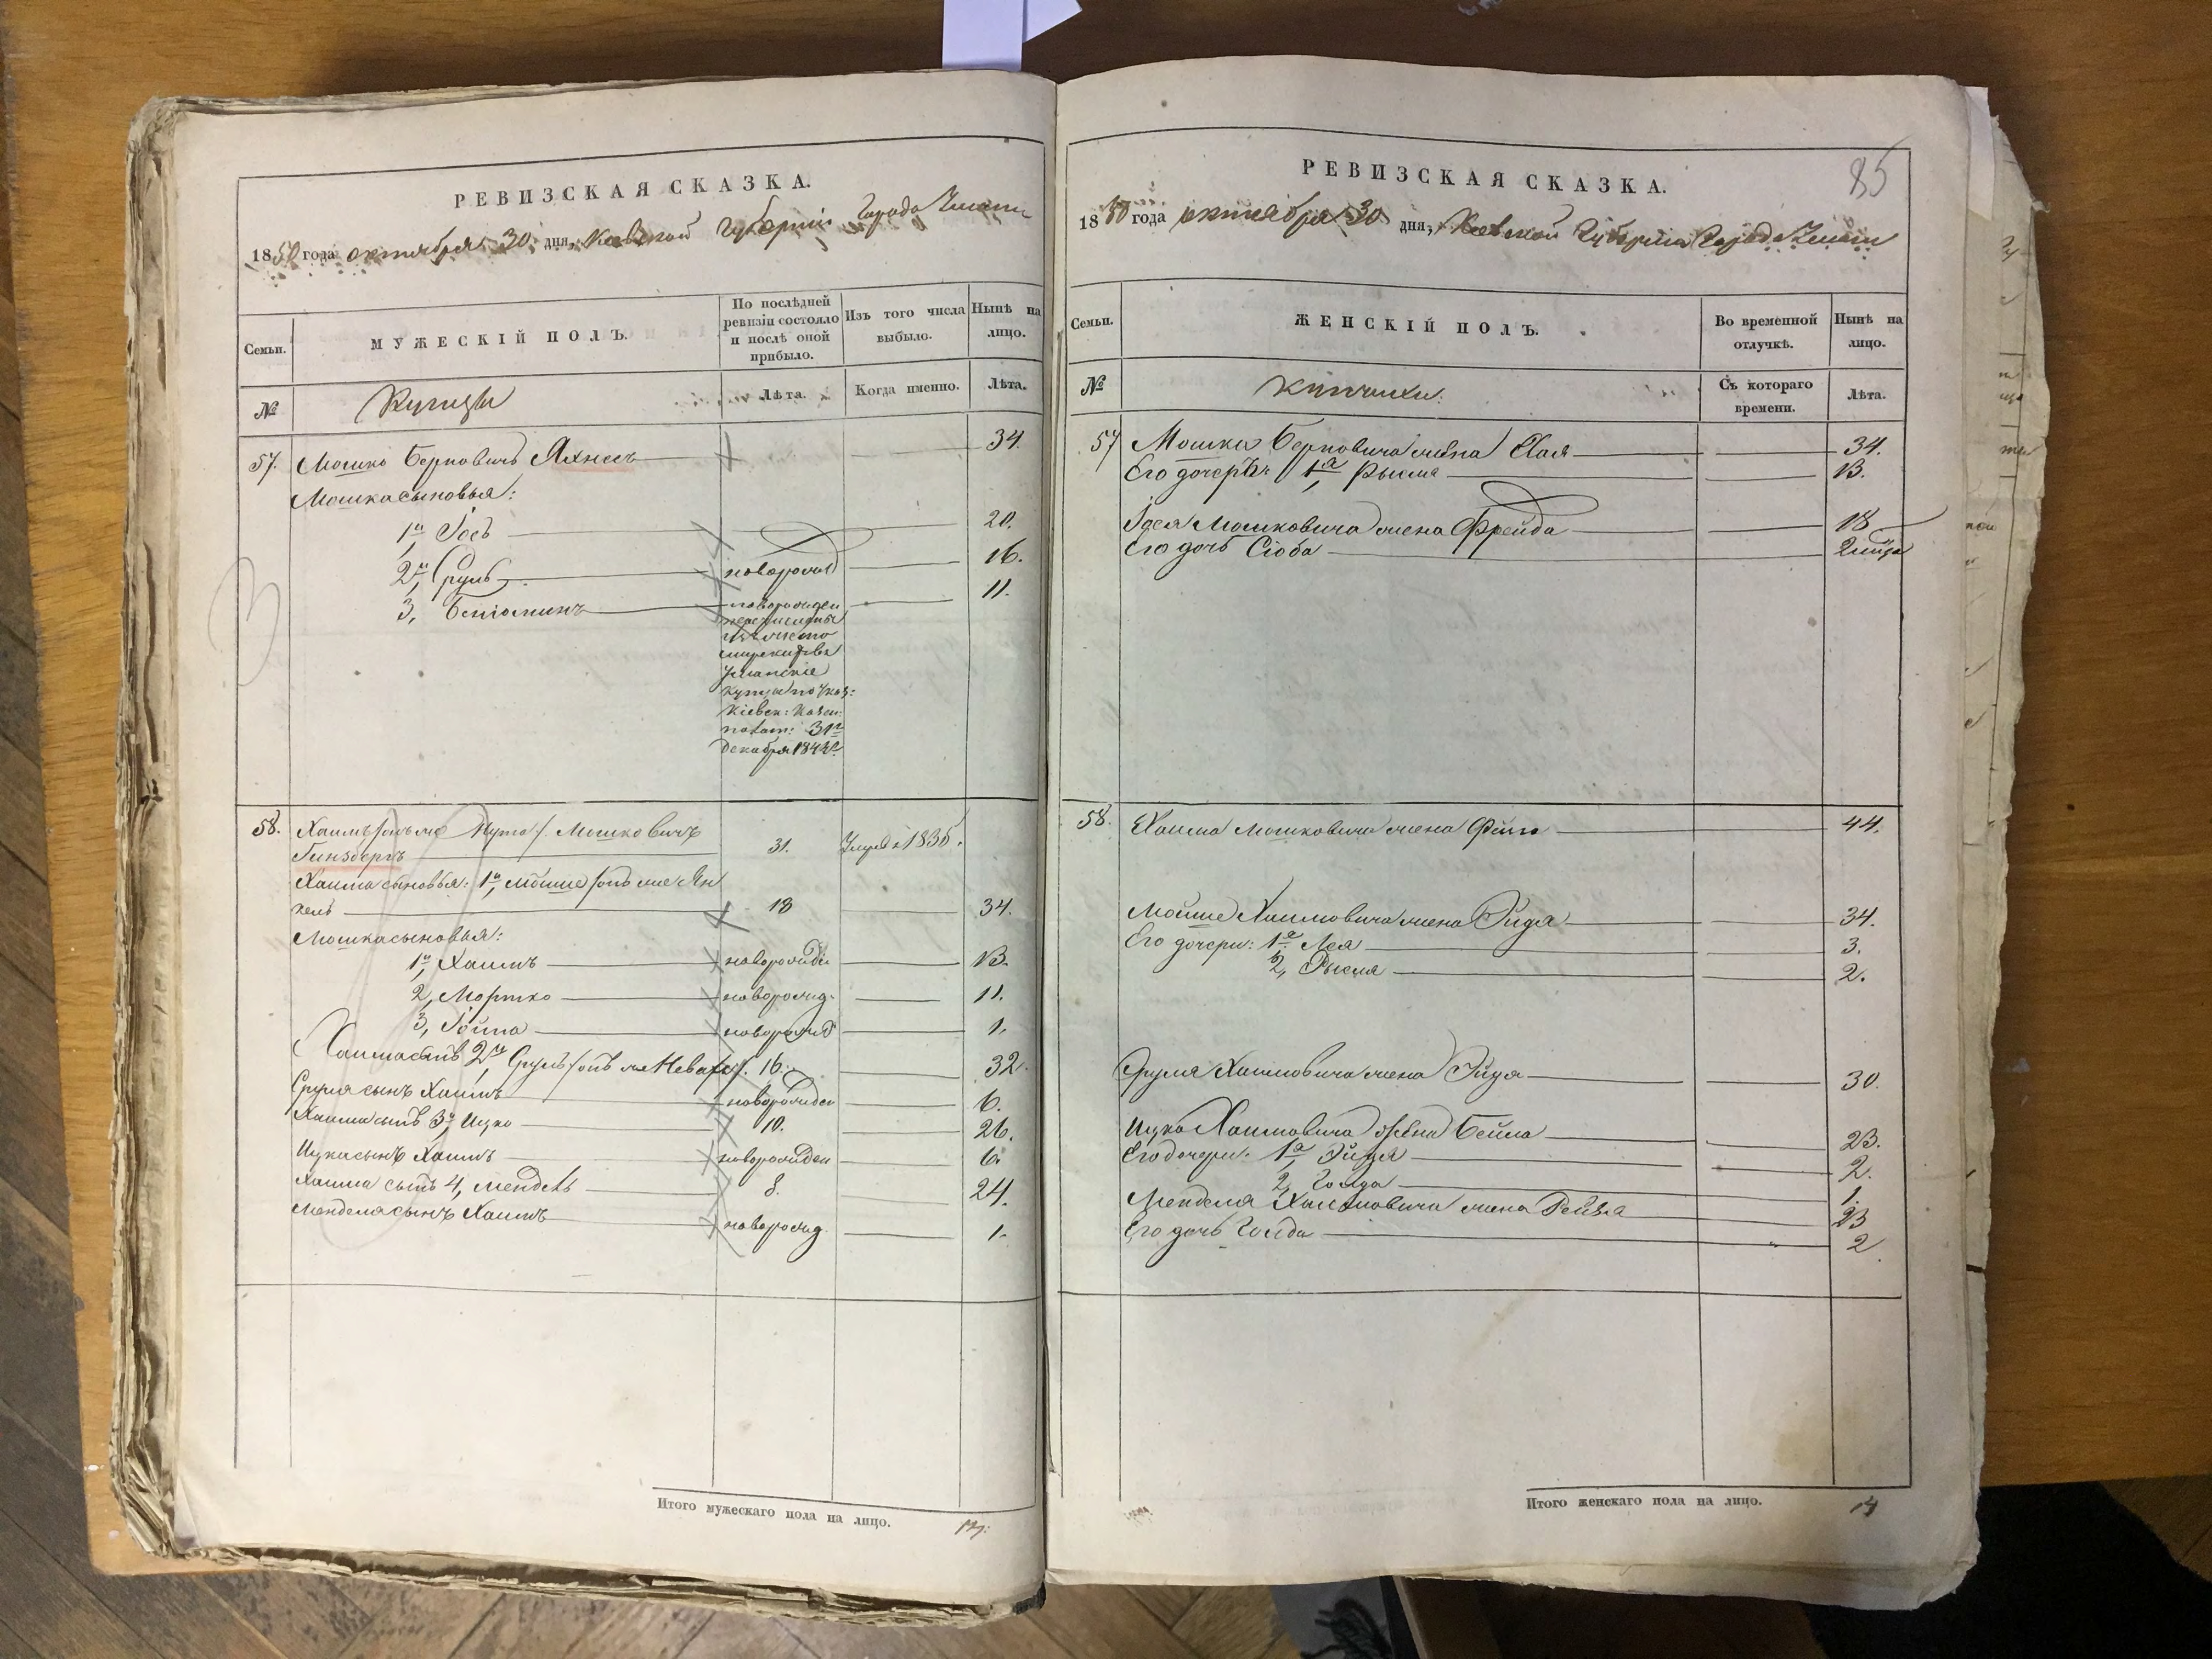 РЕВИЗСКАЯ СКАЗКА.
1850 года октября 30 дня, Киевской Губернiи Города Умани
Семьи.
МУЖЕСКІЙ ПОЛЪ.
По послѣдней ревизіи состояло и послѣ оной прибыло.
Изъ того числа выбыло.
Нынѣ на лицо.
№
Купцы
Лѣта.
Когда именно.
Лѣта.
57. Мошко Берковичъ Яхнесъ 34.
Мошка сыновья:
1й, Іосъ 20.
2й, Сруль новорожд 16.
3, Беніоминъ новорожден 11.
перечислены
изъ
Уманскіе
купцы по Указ:
Кіевск: Казен:
палат: 31го
декабря 184
58. Хаимъ /онъ же Нута/. Мошковичъ
Гинзбергъ 31. Умре въ 1835.
Хаима сыновья: 1й, Мойше /онъ же Ян
кель 18 34.
Мошка сыновья:
1й, Хаимъ новорожден 13.
2, Мортко новорожд. 11.
3, Іойна новорожд 1.
Хаима сынъ 2й, Сруль /онъ же 16. 32.
Сруля сынъ Хаимъ новорожден 6.
Хаима сынъ 3й, Ицко 10. 26.
Ицка сынъ Хаимъ новорожден 6.
Хаима сынъ 4, Мендель 8. 24.
Менделя сынъ Хаимъ новорожд. 1.
Итого мужескаго пола на лицо.
85
РЕВИЗСКАЯ СКАЗКА.
1850 года октября 30 дня, Киевской Губернiи Города Умани
Семьи.
ЖЕНСКІЙ ПОЛЪ.
Во временной отлучкѣ.
Нынѣ на лицо.
№
Купчихи.
Съ котораго времени.
Лѣта.
57 Мошка Берковича жена Хая 34.
Его дочерь: 1я, Рысля 13.
Іося Мошковича жена Фрейда 18
Его дочь Сіоба 2 мѣся
58. Хаима Мошковича жена Фейга 44.
Мойше Хаимовича жена Эйдя 34.
Его дочери: 1я, Лея 3.
2, Рысля 2.
Сруля Хаимовича жена 30.
Ицка Хаимовича жена Бейла 23.
Его дочери: 1я, 2.
2, Голда 1.
Менделя Хаимовича жена Рейзя 23
Его дочь Голда 2
Итого женскаго пола на лицо.